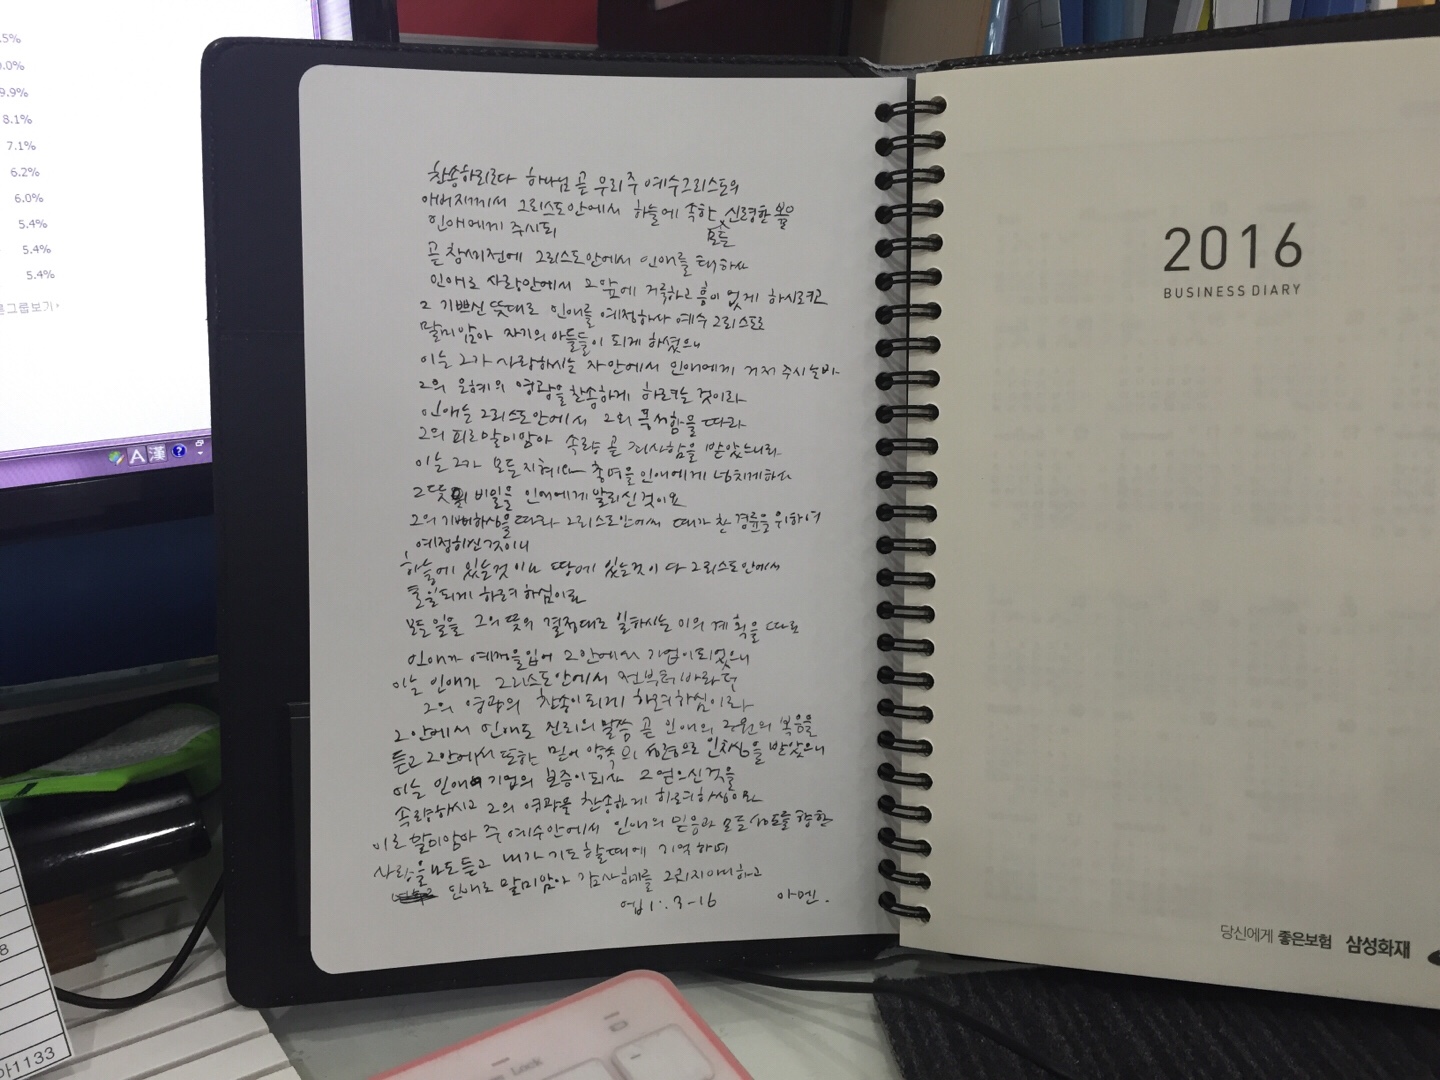 5%
0.0%
9.9%
8.1%
7.1%
6.2%
6.0%
5.4%
5.4%
5.4%
그룹보기
A 漢 ?
찬송하리로다 하나님 곧 우리 주 예수 그리스도의
아버지께서 그리스도 안에서 하늘에 속한 모든 신령한 복을
인애에게 주시되
곧 창세전에 그리스도 안에서 인애를 택하사
인애로 사랑안에서 그 앞에 거룩하고 흠이 없게 하시려고
그 기쁘신 뜻대로 인애를 예정하사 예수 그리스도로
말미암아 자기의 아들들이 되게 하셨으니
이는 그가 사랑하시는 자 안에서 인애에게 거저 주시는바
그의 은혜의 영광을 찬송하게 하려는 것이라
인애는 그리스도 안에서 그의 풍성함을 따라
그의 피로 말미암아 속량 곧 죄사함을 받았느니라
이는 그가 모든 지혜와 총명을 인애에게 넘치게하사
그 뜻의 비밀을 인애에게 알리신 것이요
그의 기뻐하심을 따라 그리스도 안에서 때가 찬 경륜을 위하여
예정하신 것이니
하늘에 있는 것이나 땅에 있는 것이 다 그리스도 안에서
통일되게 하려 하심이라
모든 일을 그의 뜻의 결정대로 일하시는 이의 계획을 따라
인애가 예정을 입어 그 안에서 기업이 되었으니
이는 인애가 그리스도 안에서 전부터 바라던
그의 영광의 찬송이 되게 하려 하심이라
그 안에서 인애도 진리의 말씀 곧 인애의 구원의 복음을
듣고 그 안에서 또한 믿어 약속의 성령으로 인치심을 받았으니
이는 인애 기업의 보증이 되사 그 얻으신 것을
속량하시고 그의 영광을 찬송하게 하려 하심이라
이로 말미암아 주 예수 안에서 인애의 믿음과 모든 성도를 향한
사랑을 나도 듣고 내가 기도할 때에 기억하며
인애로 말미암아 감사하기를 그치지 아니하고
엡 1:3-16 아멘.
2016
BUSINESS DIARY
당신에게 좋은보험 삼성화재
8
아1133
Lock